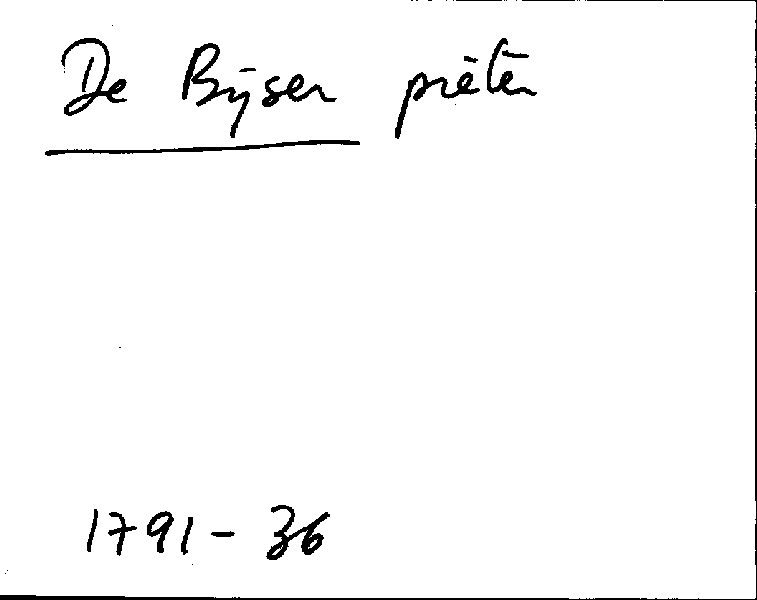 De Bijser pieter
1791 - 36